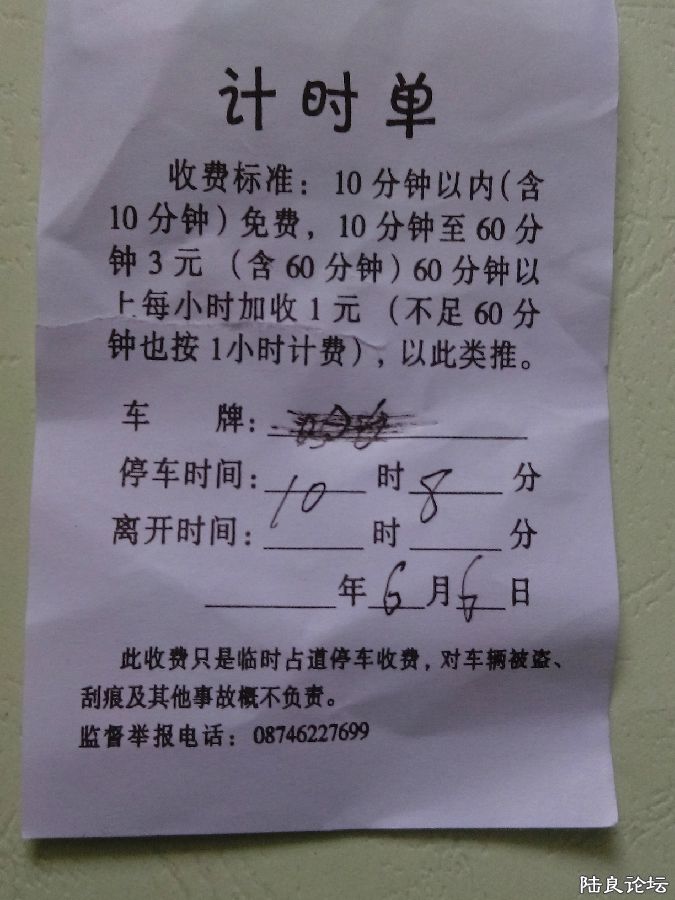 计时单
收费标准：10分钟以内（含
10分钟）免费，10分钟至60分
钟3元（含60分钟）60分钟以
上每小时加收1元（不足60分
钟也按1小时计费），以此类推。
车 牌：
停车时间：10时8分
离开时间：____时____分
____年6月6日
此收费只是临时占道停车收费，对车辆被盗、
刮痕及其他事故概不负责。
监督举报电话：08746227699
陆良论坛